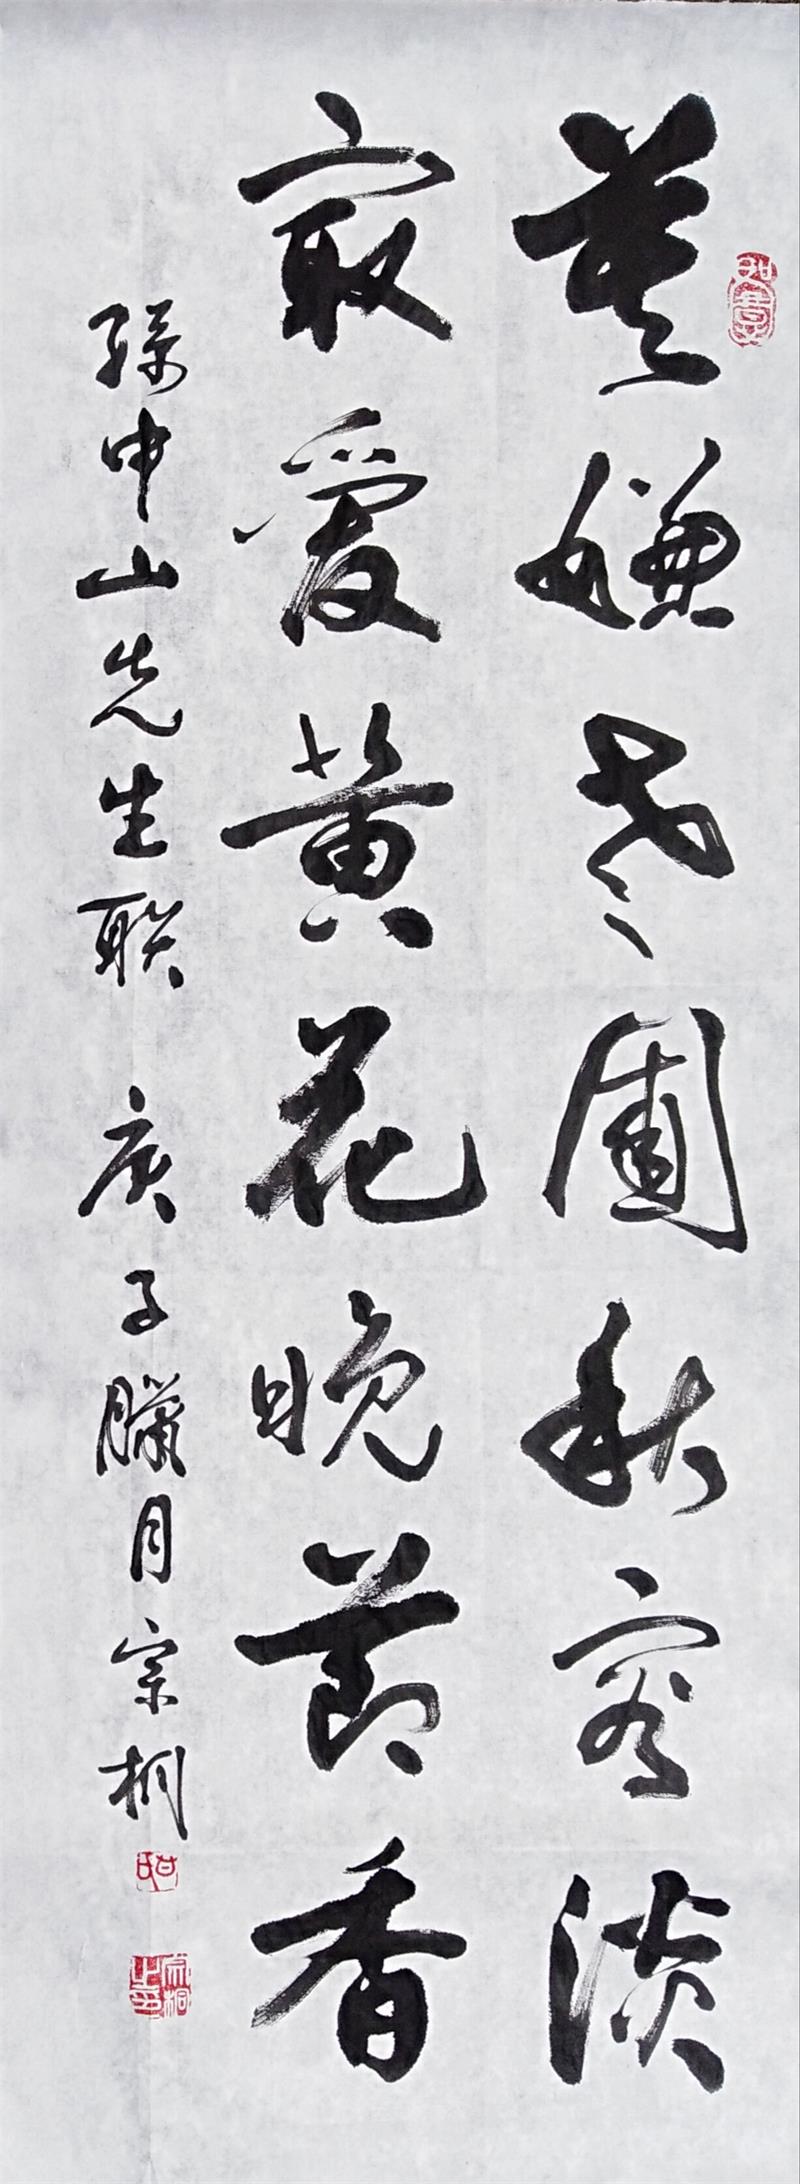 莫嫌老圃秋容淡
㝡爱黄花晚节香
孙中山先生联 庚子臘月宗桐